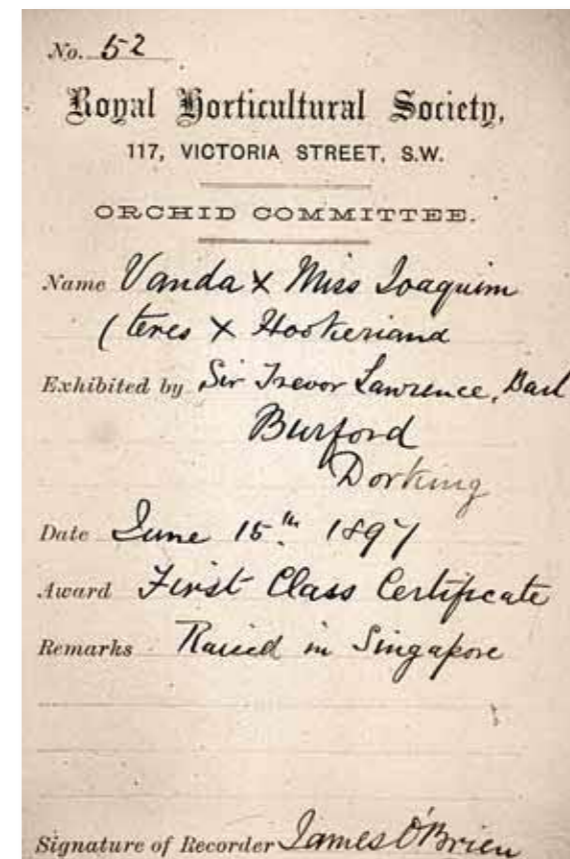 No. 52
Royal Horticultural Society,
117, VICTORIA STREET, S.W.
ORCHID COMMITTEE.
Name Vanda × Miss Joaquim
(teres × Hookeriana
Exhibited by Sir Trevor Lawrence, Bart
Burford
Dorking
Date June 15th 1897
Award First Class Certificate
Remarks Raised in Singapore
Signature of Recorder James O'Brien